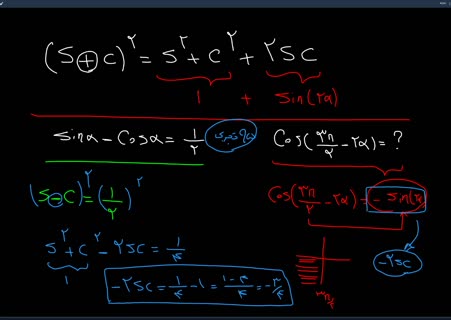 (S+C)^۲ = S^۲ + C^۲ + ۲SC
۱ + sin(۲α)
sinα - cosα = ۱/۲
cos(۳π/۲ - ۲α) = ?
(S-C)^۲ = (۱/۲)^۲
cos(۳π/۲ - ۲α) = - sin(۲α)
S^۲ + C^۲ - ۲SC = ۱/۴
۱
-۲SC
-۲SC = ۱/۴ - ۱ = ۱-۴/۴ = -۳/۴
۳π/۲